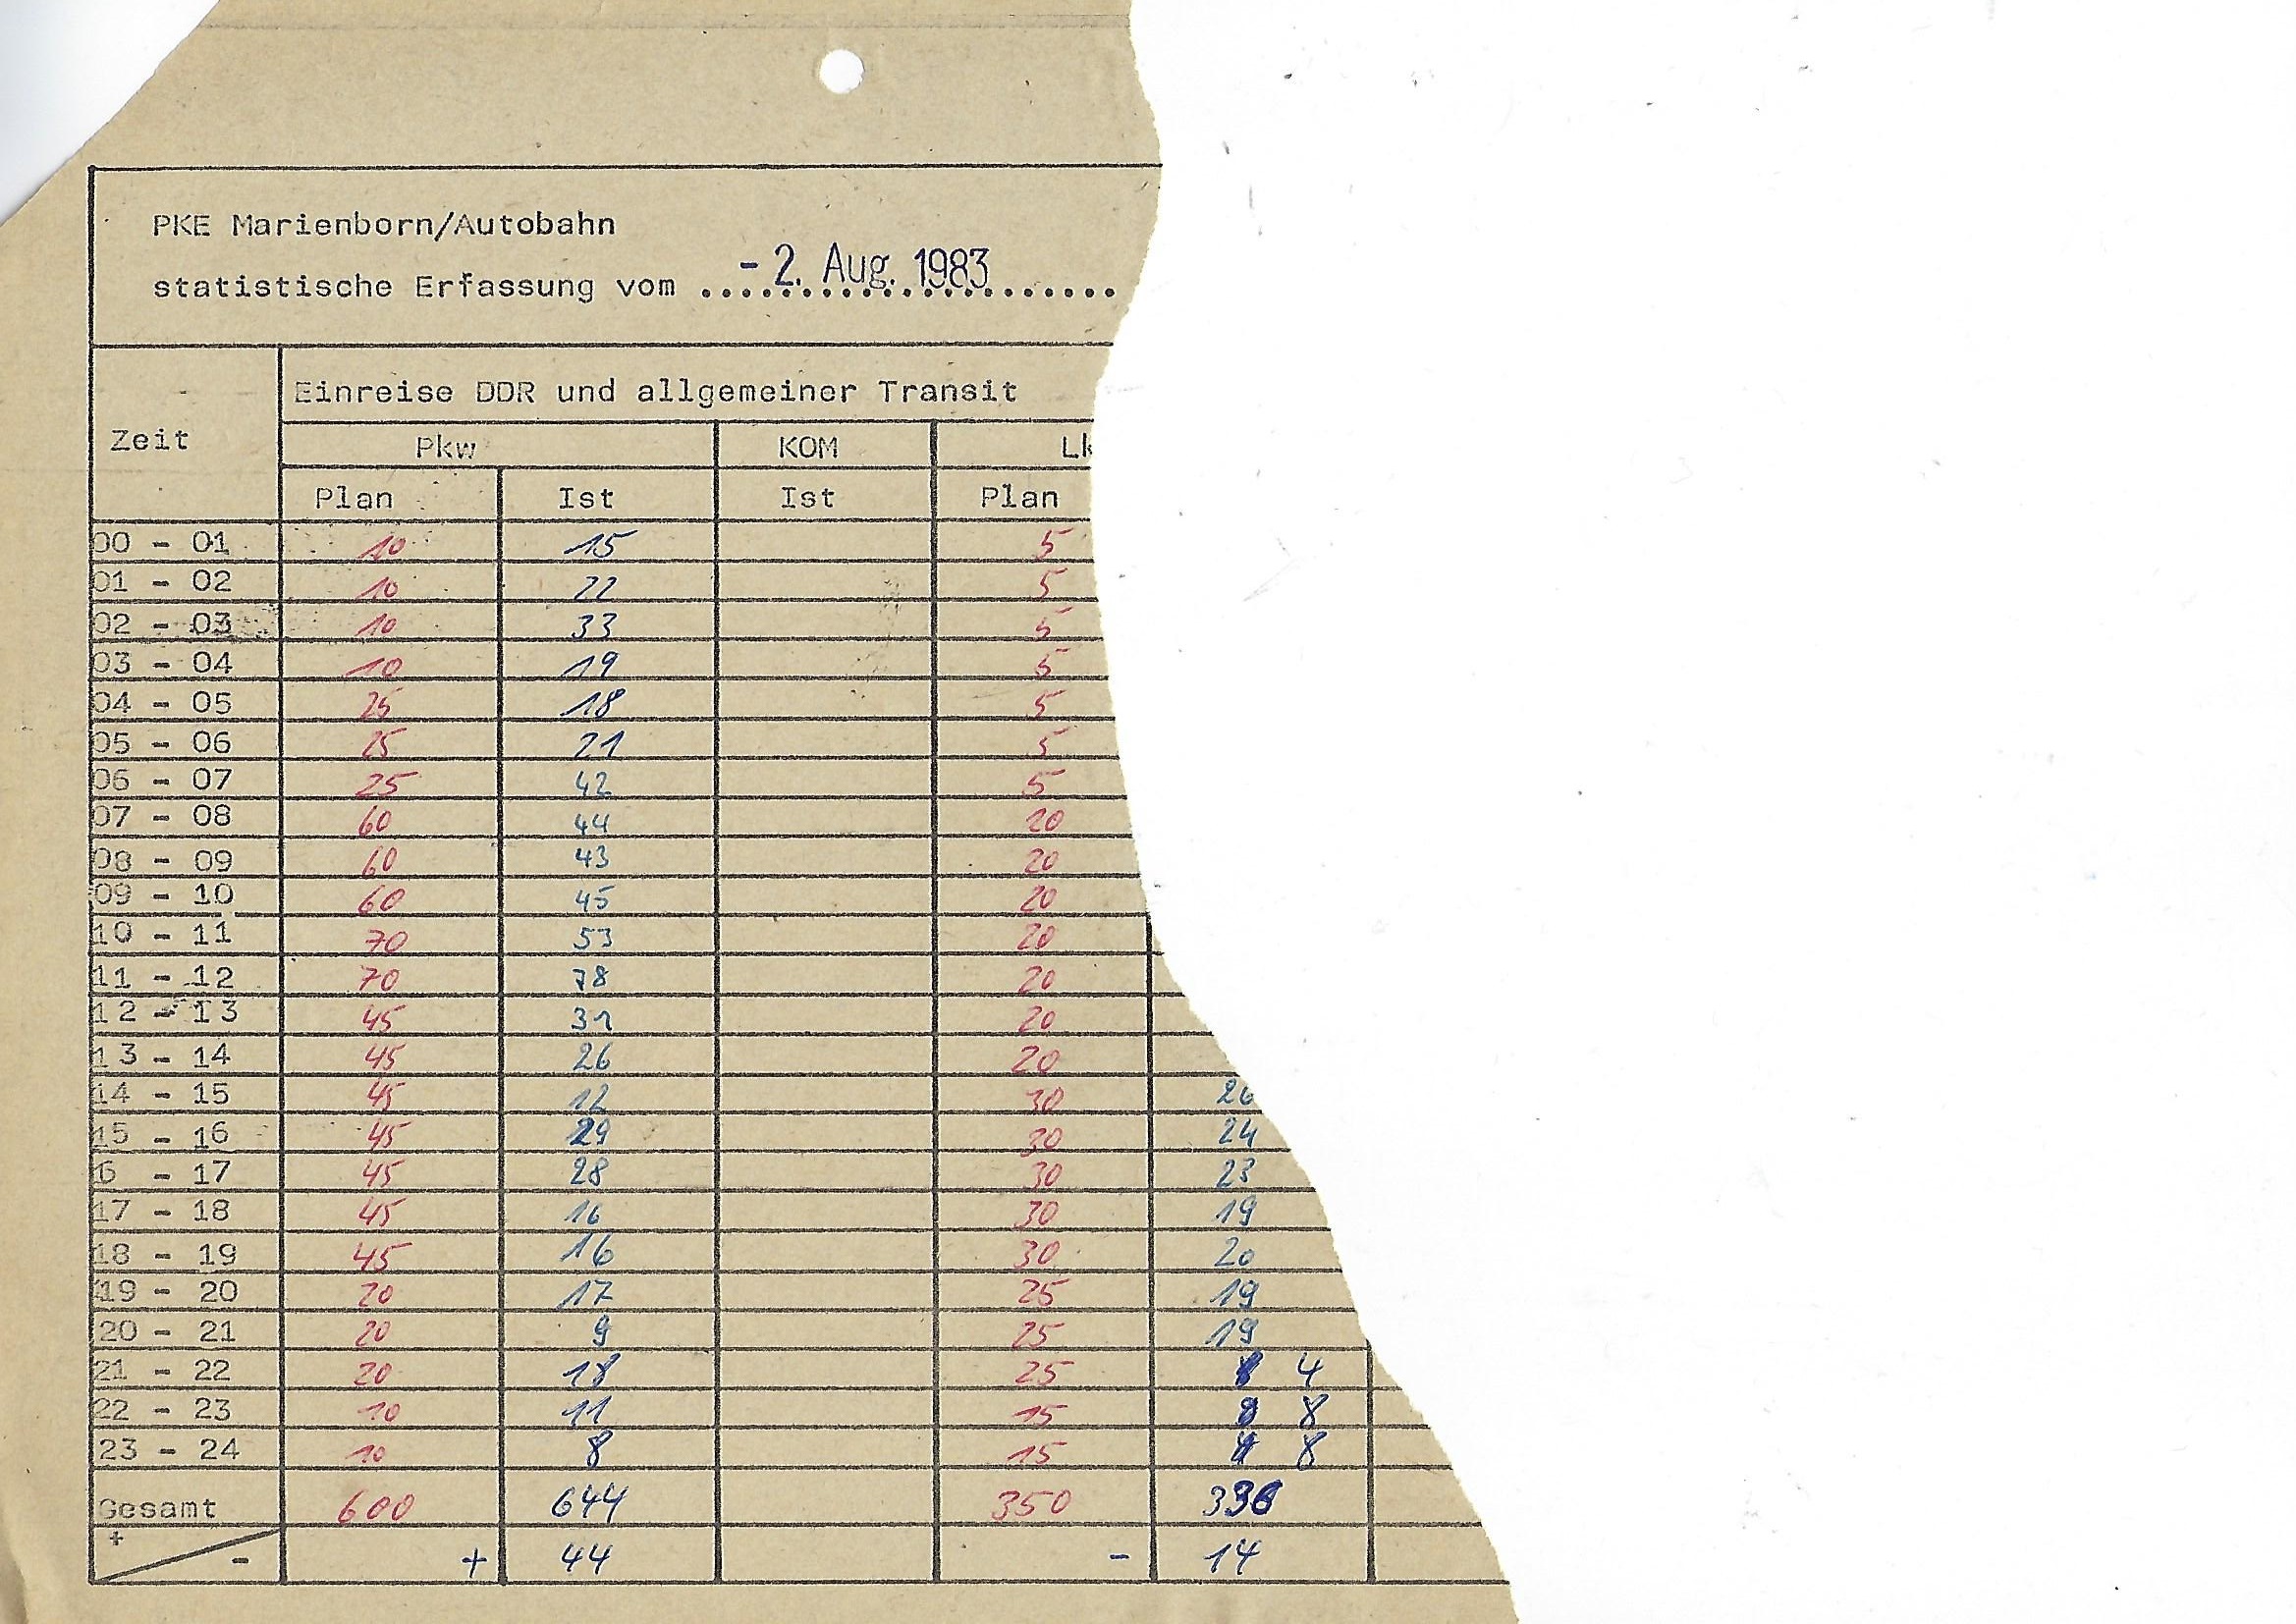 PKE Marienborn/Autobahn
statistische Erfassung vom - 2. Aug. 1983
Einreise DDR und allgemeiner Transit
Zeit Pkw KOM Lk
Plan Ist Ist Plan
00 - 01 10 15 5
01 - 02 10 22 5
02 - 03 10 33 5
03 - 04 10 19 5
04 - 05 25 18 5
05 - 06 25 21 5
06 - 07 25 42 5
07 - 08 60 44 20
08 - 09 60 43 20
09 - 10 60 45 20
10 - 11 70 53 20
11 - 12 70 78 20
12 - 13 45 31 20
13 - 14 45 26 20
14 - 15 45 12 30 26
15 - 16 45 29 30 24
6 - 17 45 28 30 23
17 - 18 45 16 30 19
18 - 19 45 16 30 20
19 - 20 20 17 25 19
20 - 21 20 9 25 19
21 - 22 20 18 25 4
22 - 23 10 11 15 8
23 - 24 10 8 15 8
Gesamt 600 644 350 336
+ - + 44 - 14